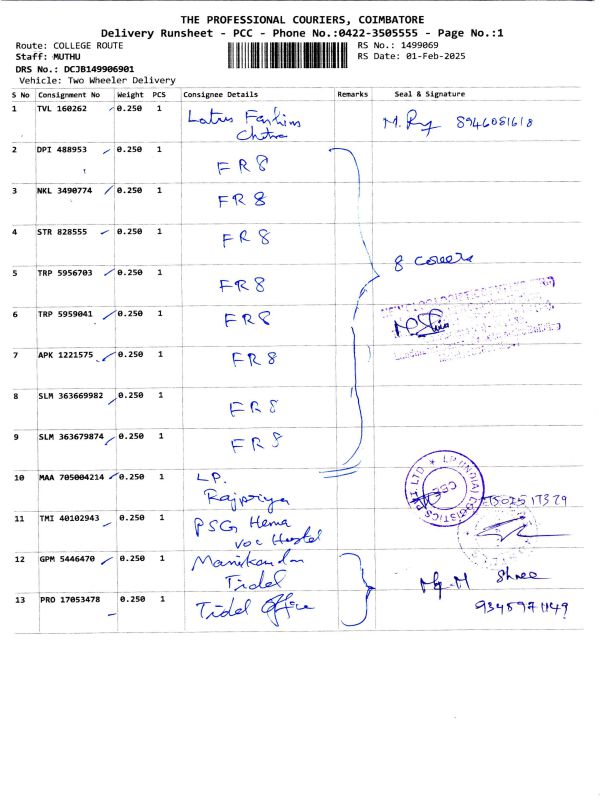 THE PROFESSIONAL COURIERS, COIMBATORE
Delivery Runsheet - PCC - Phone No.:0422-3505555 - Page No.:1
Route: COLLEGE ROUTE RS No.: 1499069
Staff: MUTHU RS Date: 01-Feb-2025
DRS No.: DCJB149906901
Vehicle: Two Wheeler Delivery
S No Consignment No Weight PCS Consignee Details Remarks Seal & Signature
1 TVL 160262 0.250 1 8946081618
2 DPI 488953 0.250 1 FR8
3 NKL 3490774 0.250 1 FR8
4 STR 828555 0.250 1 FR8
5 TRP 5956703 0.250 1 FR8 8 covers
6 TRP 5959041 0.250 1 FR8
7 APK 1221575 0.250 1 FR8
8 SLM 363669982 0.250 1 FR8
9 SLM 363679874 0.250 1 FR8
10 MAA 705004214 0.250 1 LP.
Rajpriya
11 TMI 40102943 0.250 1 PSG Hema
VOC Hostel
12 GPM 5446470 0.250 1 Manikandan
Tidel Shree
13 PRO 17053478 0.250 1 Tidel Office